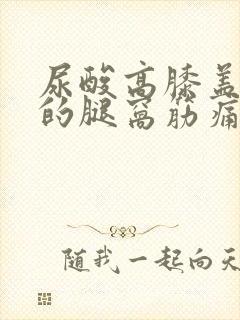 尿酸高膝盖
的腿窝筋痛
随我一起向天